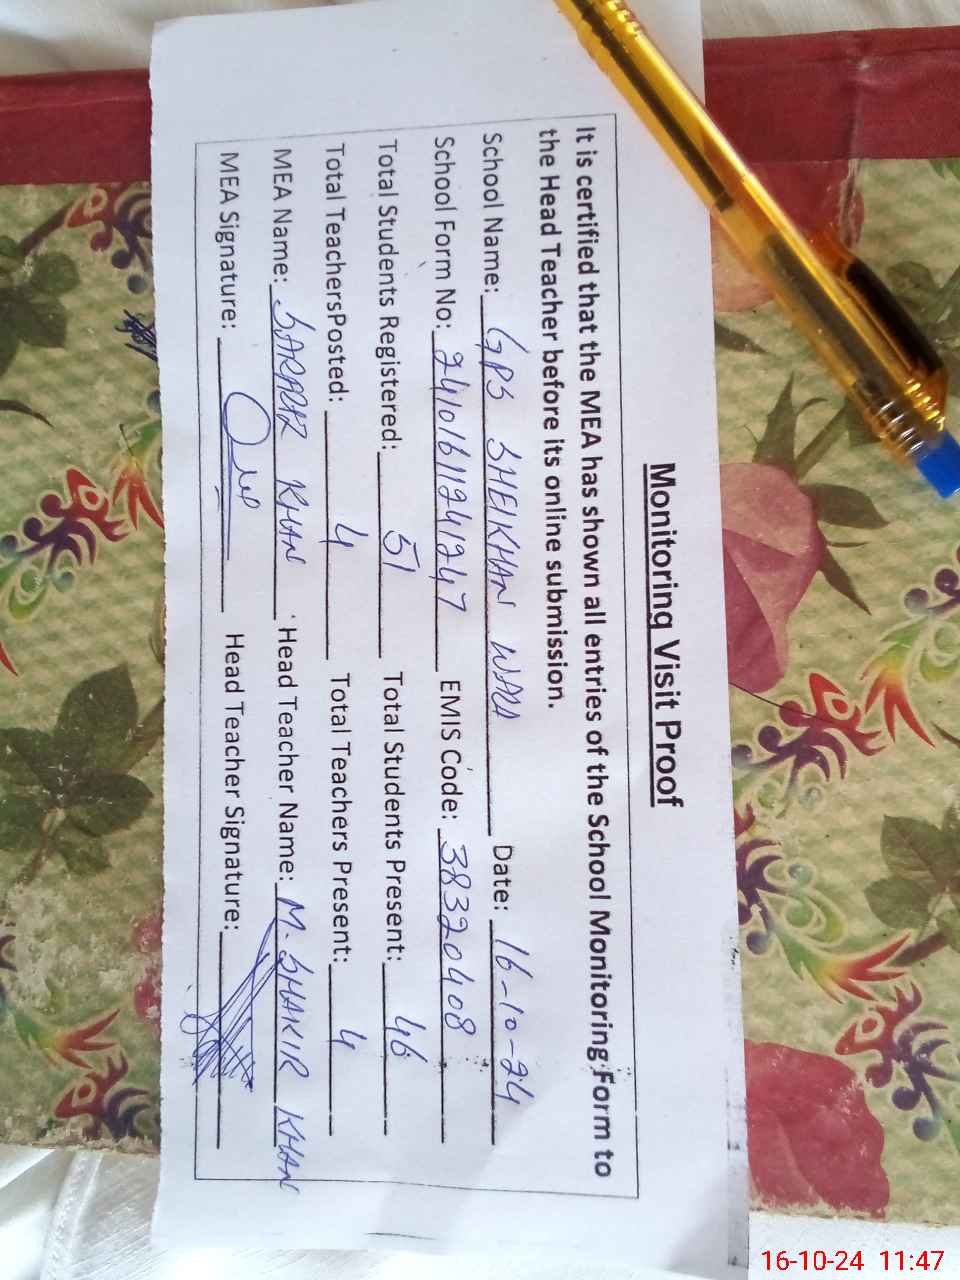 Monitoring Visit Proof
It is certified that the MEA has shown all entries of the School Monitoring Form to
the Head Teacher before its online submission.
School Name: GPS SHEIKHAN WALA Date: 16-10-24
School Form No: 24101611241247 EMIS Code: 38320408
Total Students Registered: 51 Total Students Present: 46
Total TeachersPosted: 4 Total Teachers Present: 4
MEA Name: SARFRAZ KHAN Head Teacher Name: M. SHAKIR KHAN
MEA Signature: Head Teacher Signature:
16-10-24 11:47